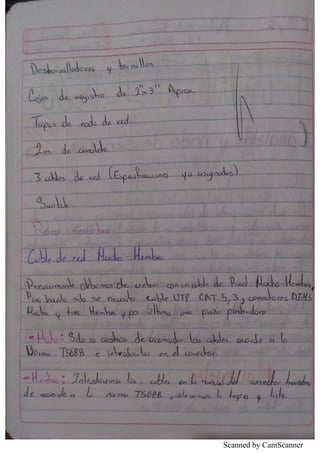 Destornilladores y tornillos
Cajas de registro de 2"x3" Aprox.
Tapas de nodo de red.
2m de canaleta.
3 cables de red (Especificaciones ya asignadas)
Switch
Cable de red Macho-Hembra.
Previamente debemos de contar con un cable de Red Macho-Hembra,
Para hacerlo solo se necesita cable UTP CAT. 5, 3 conectores RJ45
Macho y tres Hembra y por último una pinza ponchadora
-Macho: Solo es cuestión de acomodar los cables acorde a la
Norma T568B e introducirlos en el conector.
-Hembra: Introducimos los cables en la ranura del conector hembra
de acuerdo a la norma T568B, colocamos la tapa y listo.
Scanned by CamScanner